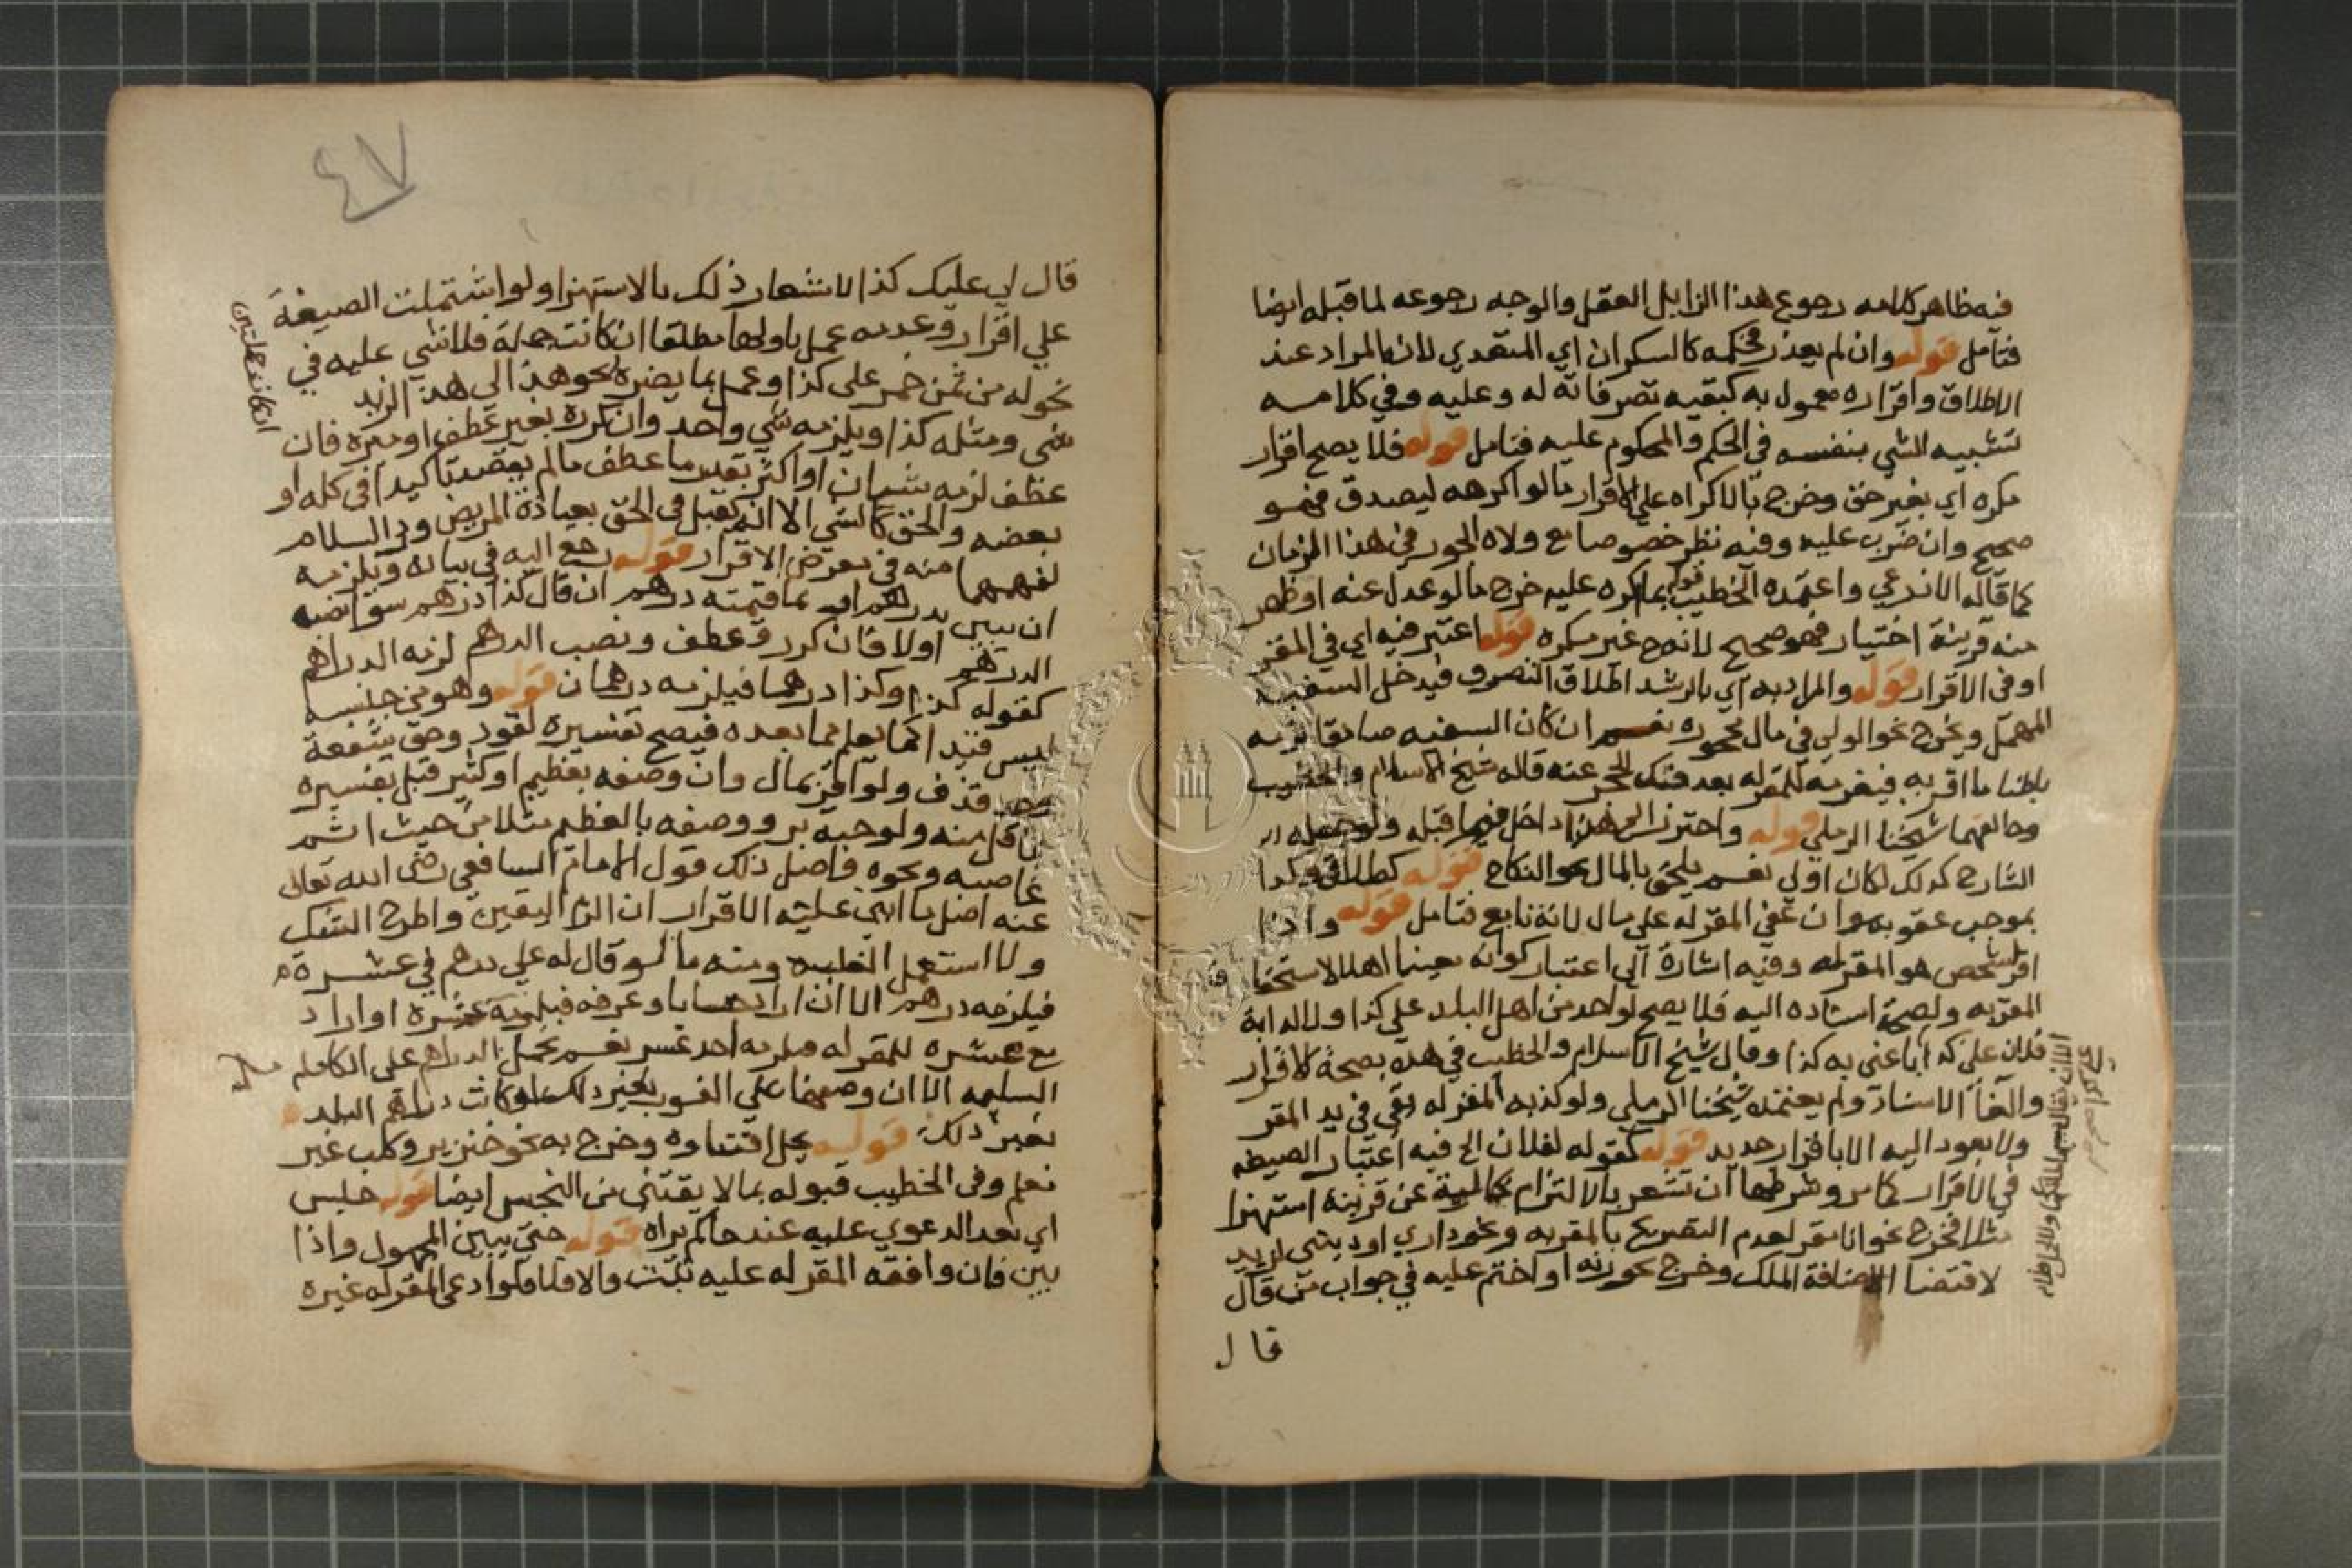 فيه ظاهر كلامه رجوع هذا الزايل العقل والوجه رجوعه لما قبله ايضا
فتامل قوله وان لم يعذر فحكمه كالسكران اي المتعدي لانه المراد عند
الاطلاق واقراره معمول به كبقيه تصرفاته له وعليه وفي كلامه
تشبيه الشي بنفسه في الحكم والمحكوم عليه فتامل قوله فلا يصح اقرار
مكره اي بغير حق وخرج بالاكراه علي الاقرار مالو اكرهه ليصدق فهو
صحيح وان ضرب عليه وفيه نظر خصوصا مع ولاه الجور في هذا الزمان
كما قاله الاذرعي واعتمده الخطيب قوله بما اكره عليه خرج مالو عدل عنه او ظهر
منه قرينة اختيار فهو صحيح لانه ح غير مكره قوله اعتبر فيه اي في المقر
او في الاقرار قوله والمراد به اي بالرشد اطلاق التصرف فيدخل السفيه
المهمل ويخرج نحو الولي في مال محجوره نعم ان كان السفيه صادقا لزمه
باطنا ما اقر به فيغرمه للمقر له بعد فك الحجر عنه قاله شيخ الاسلام والخطيب
وخالفهما شيخنا الرملي قوله واحترز الى هذا داخل فيما قبله ولو جعله
الشارح كذلك لكان اولي نعم يلحق بالمال نحو النكاح قوله كطلاق وكذا
بموجب عقوبه وان عفى المقر له على مال لانه تابع فتامل قوله واذا
اقر لشخص هو المقر له وفيه اشارة الى اعتبار كونه معينا اهلا لاستحقا
المقر به ولصحة اسناده اليه فلا يصح لواحد من اهل البلد علي كذا ولا لدابة
فلان علي كذا وقال شيخ الاسلام والخطيب في هذه بصحة الاقرار
والغا الاسناد ولم يعتمده شيخنا الرملي ولو كذبه المقر له بقى في يد المقر
ولا يعود اليه الا باقرار جديد قوله كقوله لفلان الخ فيه اعتبار الصيغه
في الاقرار كما مر وشرطها ان تشعر بالالتزام خالية عن قرينة استهزا
مثلا فخرج نحو انا مقر لعدم التصريح بالمقر به ونحو داري او ديني لزيد
لاقتضا الاضافة الملك وخرج نحو زنه او اختم عليه في جواب من قال
قال
٤٧
قال لي عليك كذا لاشعار ذلك بالاستهزا ولو اشتملت الصيغة
علي اقرار وعدمه عمل باولها مطلقا ان كانت جملة فلا شي عليه في
نحو له من ثمن خمر على كذا وعمل بما يضره نحو هذا الى هذا لزيد
شي ومثله كذا ويلزمه شي واحد وان كرره بغير عطف او ميزه فان
عطف لزمه شيان او اكثر بقدر ما عطف مالم يقصد تاكيدا في كله او
بعضه والحق كالشي الا انه يقبل في الحق بعيادة المريض ورد السلام
لفهمهما منه في معرض الاقرار قوله رجع اليه في بيانه ويلزمه
ان يبين بدرهم او بما قيمته درهم ان قال كذا درهم سوا نصب
الدرهم اولا فان كرر وعطف ونصب الدرهم لزمه الدراهم
كقوله كذا وكذا درهما فيلزمه درهمان قوله وهو من جنسه
ليس قيدا كما يعلم مما بعده فيصح تفسيره لقود وحق شفعة
وحد قذف ولو اقر بمال وان وصفه بعظيم او كثير قبل تفسيره
بما قل منه ولو حبة بر ووصفه بالعظم مثلا من حيث اثم
غاصبه ونحوه واصل ذلك قول الامام الشافعي رضى الله تعالى
عنه اصل ما ابني عليه الاقرار ان الزم اليقين واطرح الشك
ولا استعمل الغلبه ومنه مالو قال له علي درهم في عشرة
فيلزمه درهم الا ان اراد حسابا وعرفه فيلزمه عشره او اراد
مع عشره للمقر له فيلزمه احد عشر نعم تحمل الدراهم على الكامله
السليمه الا ان وصفها على الفور بغير ذلك او كانت دراهم البلد
بغير ذلك قوله يحل اقتناوه وخرج به نحو خنزير وكلب غير
نعلم وفي الخطيب قبوله بما لا يقتنى من النجس ايضا قوله حبس
اي بعد الدعوي عليه عند حاكم يراه قوله حتى يبين المجهول واذا
بين فان وافقه المقر له عليه ثبت والا فلا فلو ادعى المقر له غيره